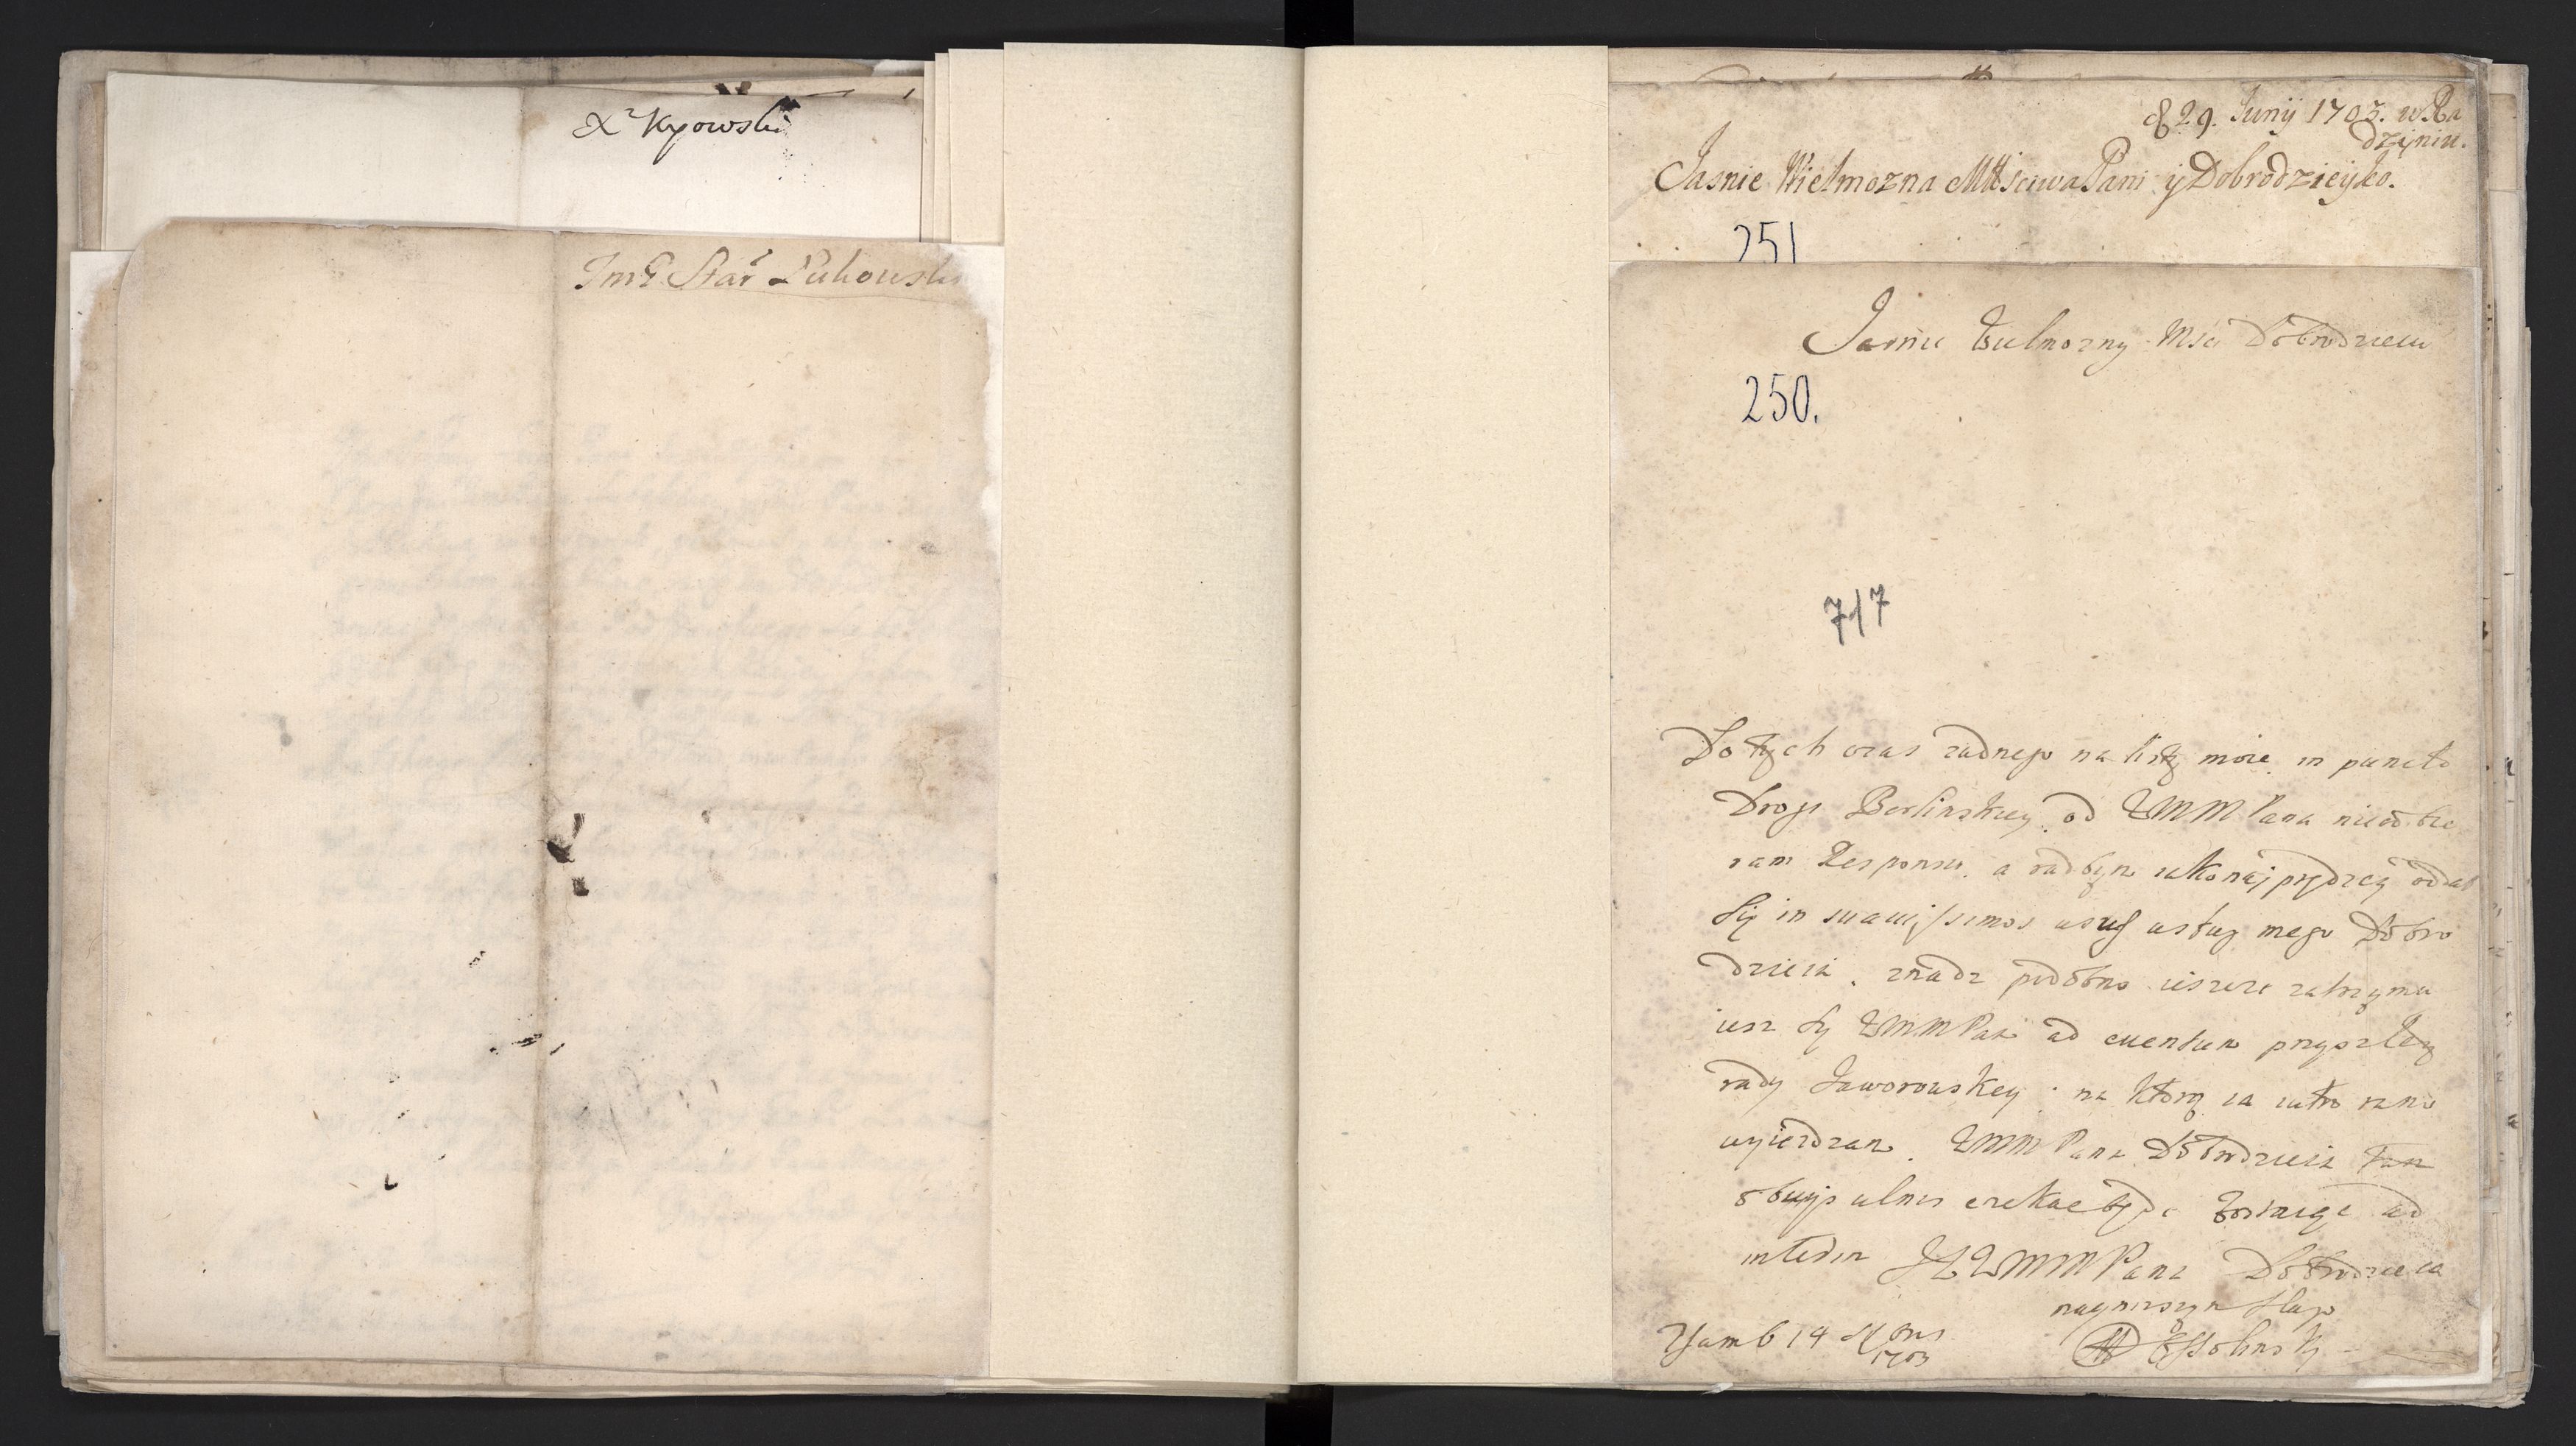 X Kijowski
Imę Star Lukowski
d 29. Junij 1703. w Ra
dzyniu.
Jasnie Wielmozna Młłsciwa Pani y Dobrodzieyko.
251
Jasnie Wielmozny Msci Dobrodzieiu
250.
717
Do tych czas zadnego na listy moie in puncto
Drogi Berlinskiey od WMM Pana nie odbie
ram Responsu. a radbym iako naj prędzey oddal
się in suauissimos usus usług mego Dobro
dzieia. znadz podobno ieszcze zatrzymu
iesz sy WMM Pan ad euentum przyszley
rady Jaworowskey. na ktorą ia iutro rano
wyiezdzam. WMM Pana Dobrodzieia tam
obuijs ulnis czekac będę zostaiąc ad
interim JWWMM Pana Dobrodzieia
nayniszym sługą
14
1703